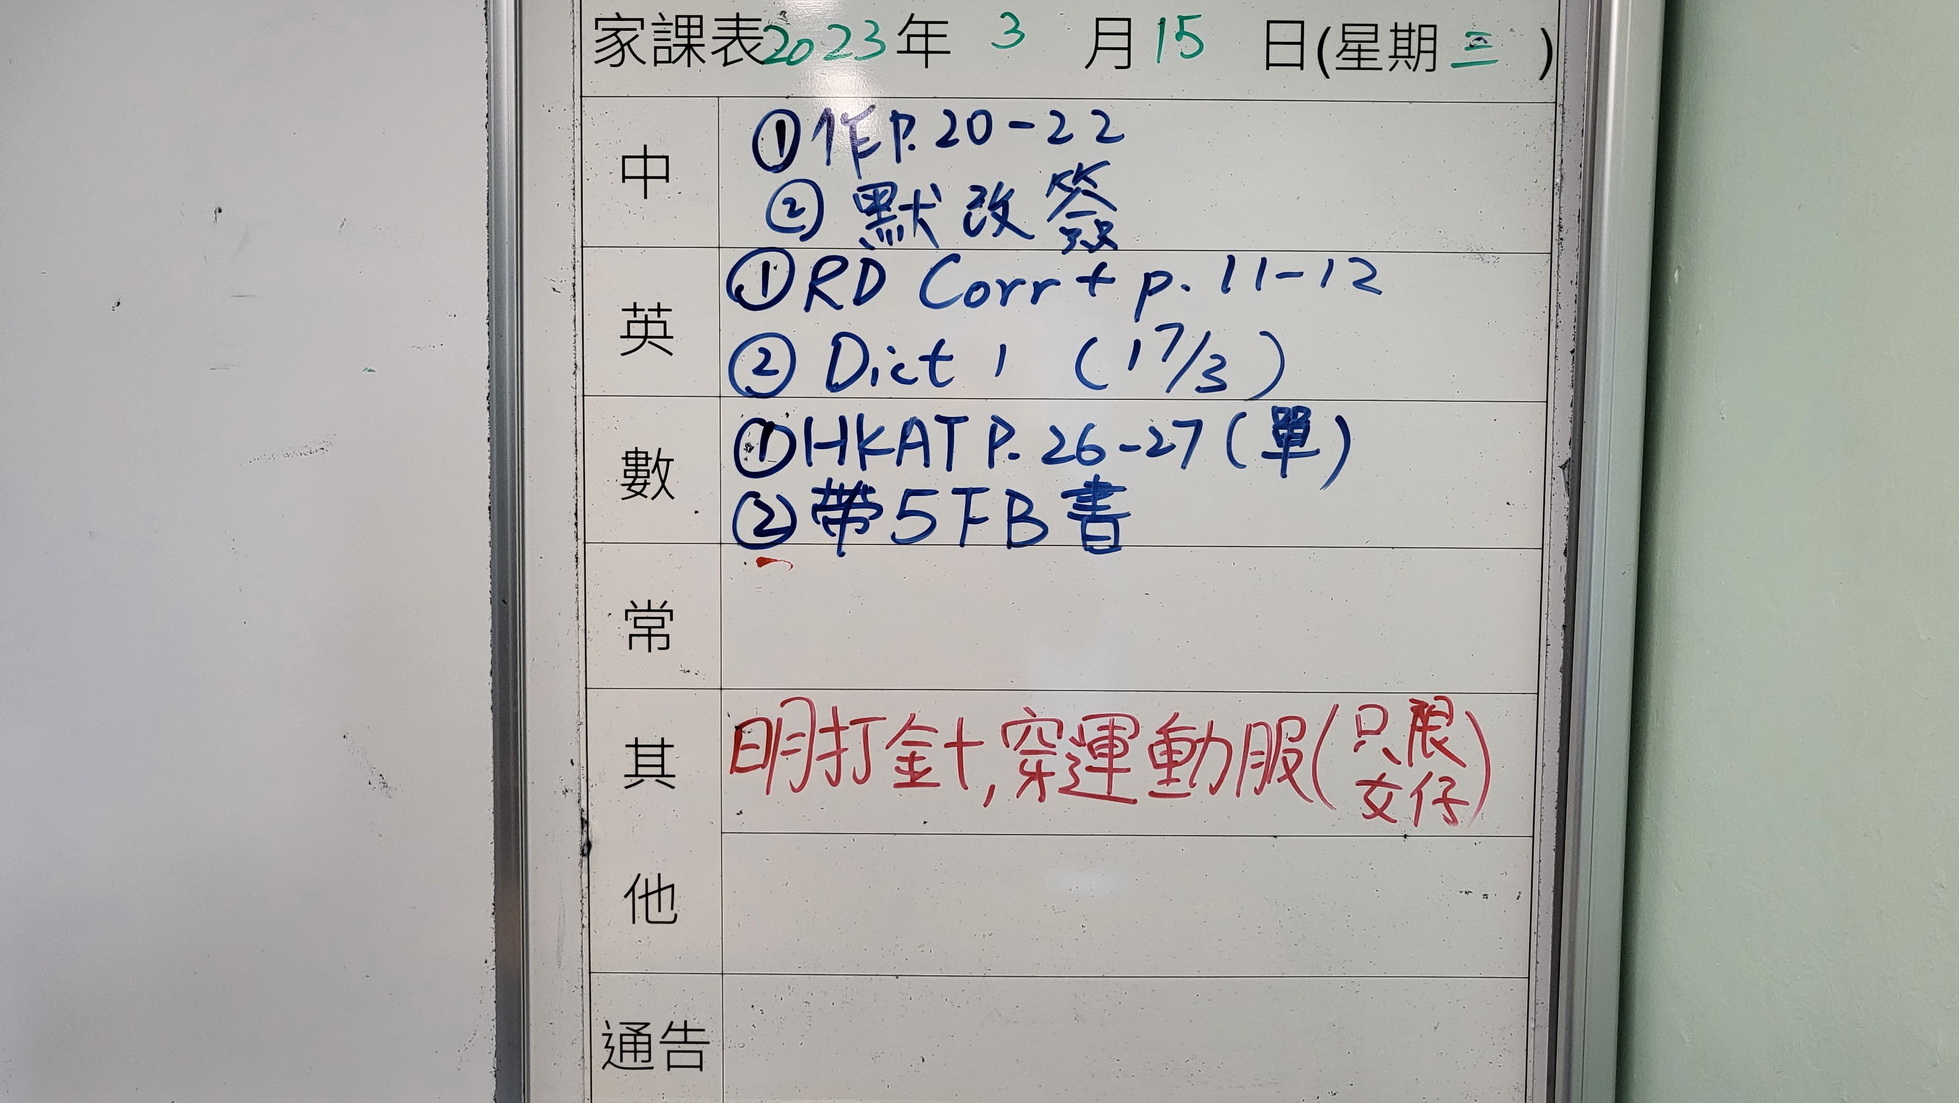 家課表2023年 3 月15 日(星期三)
中
①作P.20-22
②默改簽
英
①RD Corr + p.11-12
②Dict 1 (17/3)
數
①HKAT P.26-27(單)
②帶5FB書
常
其他
明打針,穿運動服(只限女仔)
通告